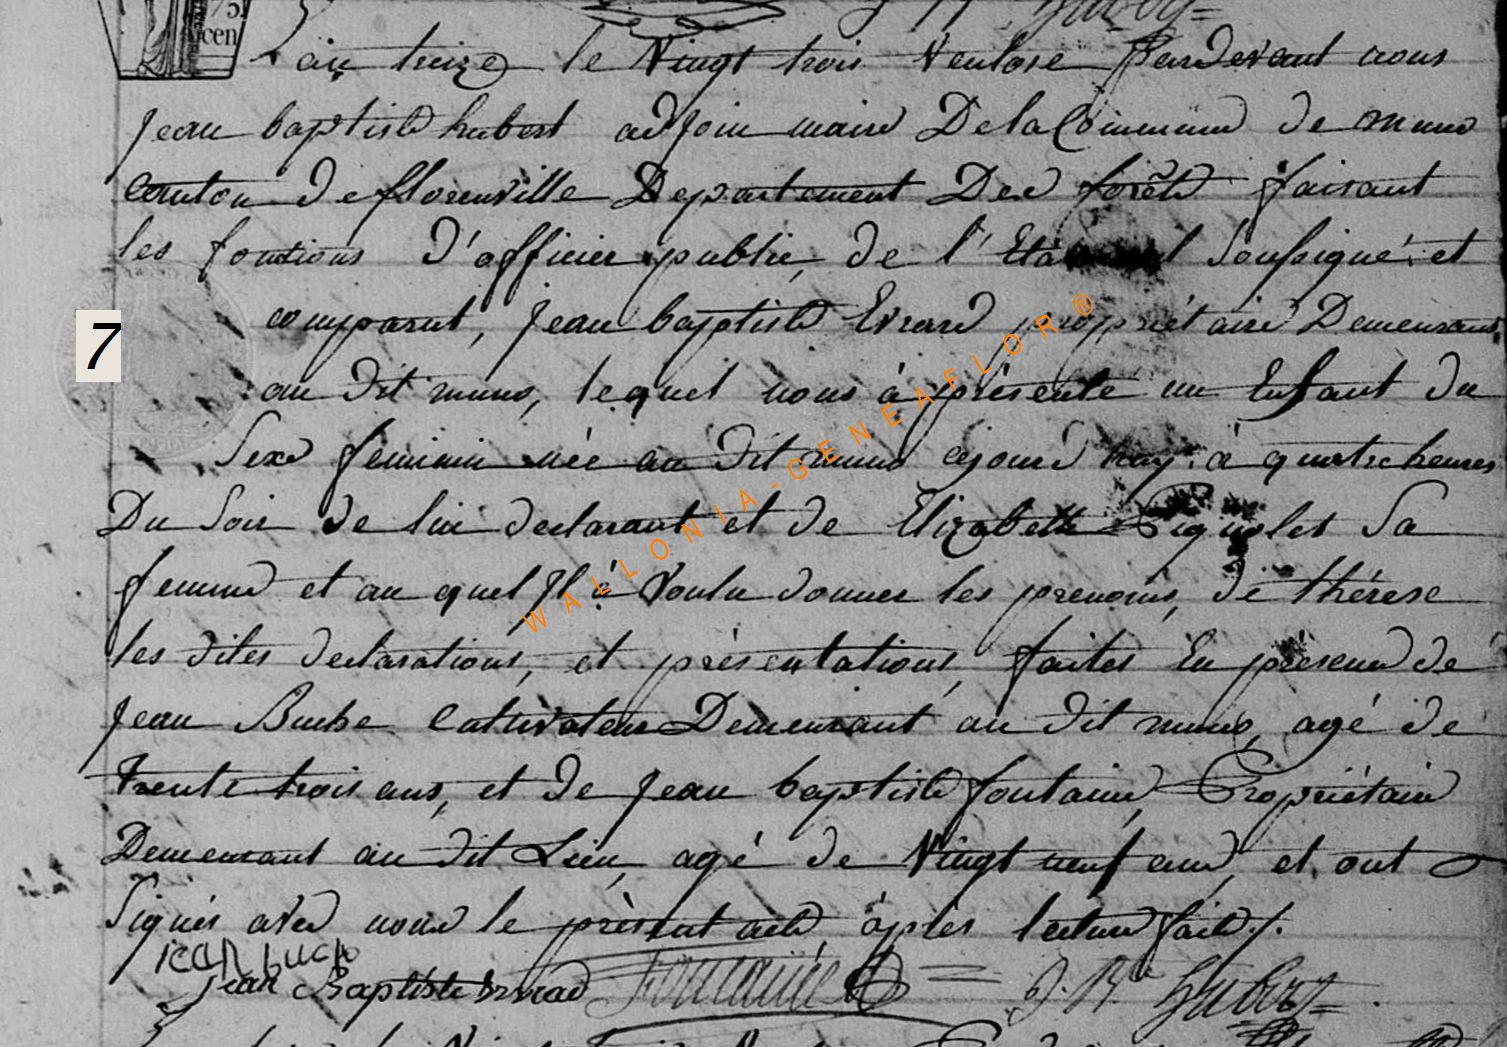 75.
cen
L'an treize le Vingt trois Ventose Pardevant nous
Jean baptiste hubert adjoin maire De la Commune de muno
Canton de florenville Departement Des forêts faisant
les fontions D'officier public, de l'Etat soussigné et
comparut, Jean baptiste Evrard propriétaire Demeurant
7
au Dit muno, lequel nous à présenté un Enfant du
Sexe feminin née au Dit muno cejourd huy à quatre heures
Du Soir de lui declarant et de Elizabette Sa
femme et au quel Il à Voulu donner les prenoms, de thérese
les dites declarations, et présentations, faites En présence de
Jean Buche Cultivateur Demeurant au Dit muno, agé de
trente trois ans, et de Jean baptiste fontaine, Propriétaire
Demeurant au dit Lieu, agé de Vingt neuf ans, et ont
Signés avec nous le présent acte àprès lecture faite /.
iean buche
Jean Baptiste Evrad Fontaine J. Bte Hubert
WALLONIA-GENEAFLOR®